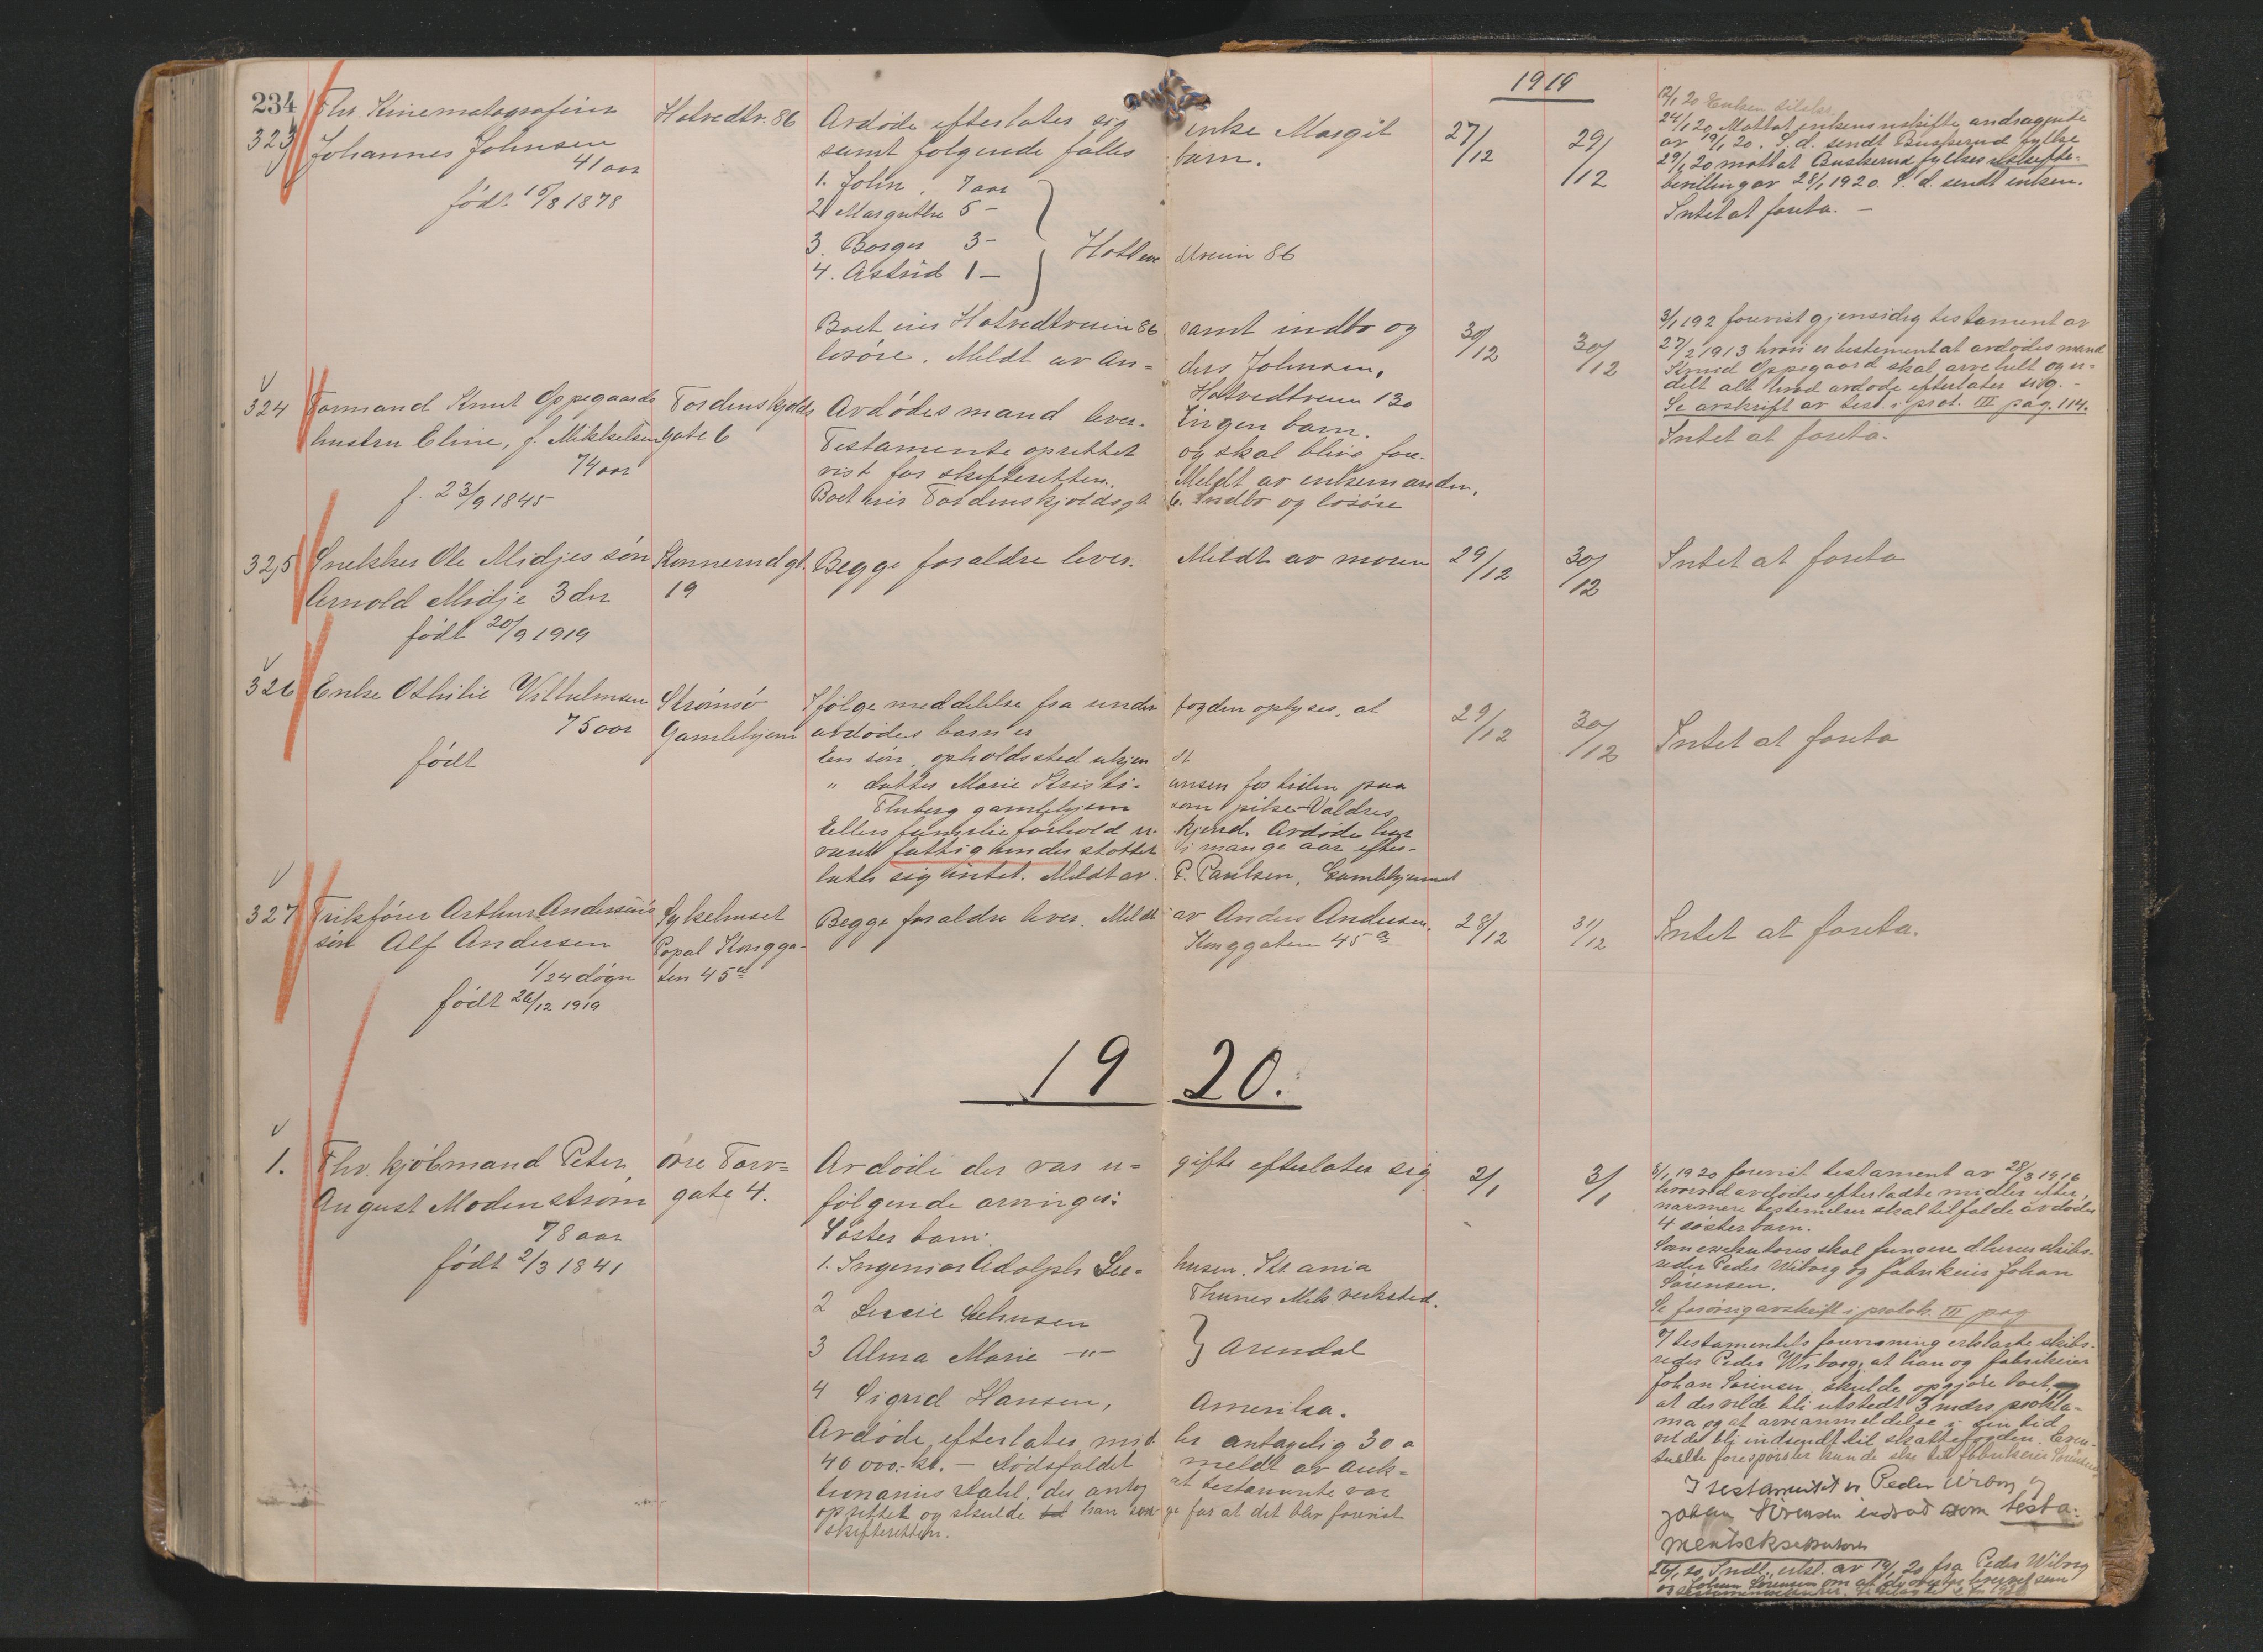 234
1919
323
Fhv. Kinematografeier
Johannes Johnsen
41 aar
født 15/8 1878
Hotvedtv. 86
Avdøde efterlater sig enke Margit
samt følgende fælles barn.
1. John, 7 aar
2 Margrethe 5 -
3. Borger 3 -
4. Astrid 1 -
Hotvedtveien 86
Boet eier Hotvedtveien 86 samt indbo og
løsøre. Meldt av Anders Johnsen,
Hotvedtveien 130
27/12
29/12
24/1 20 Mottat enkens uskifte andragende
av 19/1 20. S.d. sendt Buskerud fylke
29/1 20 mottat Buskerud fylkes uskifte-
bevilling av 28/1 1920. S.d. sendt enken.
Intet at foreta. -
324
Formand Knut Oppegaards
hustru Eline, f. Mikkelsen
74 aar
f. 23/9 1845
Tordenskjolds
gate 6
Avdødes mand lever. Ingen barn.
Testamente oprettet og skal blive fore-
vist for skifteretten. Meldt av enkemanden.
Boet eier Tordenskjoldsgt 6. Indbo og løsøre
30/12
30/12
3/1 192 forevist gjensidig testament av
27/2 1913 hvori er bestemt at avdødes mand
Knud Oppegaard skal arve helt og u-
delt alt hvad avdøde efterlater sig. -
Se avskrift av test. i prot. III pag. 114.
Intet at foreta.
325
Snekker Ole Midjes søn
Arnold Midje 3 dr
født 20/9 1919
Konnerudgt.
19
Begge forældre lever. Meldt av moren
29/12
30/12
Intet at foreta
326
Enke Othilie Vilhelmsen
75 aar
født
Strømsø
Gamlehjem
Ifølge meddelelse fra underfogden oplyses, at
avdødes barn er
En søn, opholdssted ukjendt
" datter Marie Kristiansen for tiden paa
Fluberg gamlehjem som pike - Valdres
Ellers familieforhold ukjend. Avdøde har
været fattigunderstøttet i mange aar efter-
later sig intet. Meldt av P. Paulsen, Gamlehjemmet
29/12
30/12
Intet at foreta
327
Trikfører Arthur Andersens
søn Alf Andersen
1/24 døgn
født 26/12 1919
Sykehuset
Bopæl Kongga-
ten 45a
Begge forældre lever. Meldt av Anders Andersen,
Konggaten 45a
28/12
31/12
Intet at foreta.
1920.
1.
Fhv. kjøbmand Peter
August Modenstrøm
78 aar
født 2/3 1841
Øvre Torv-
gate 4.
Avdøde der var ugifte efterlater sig
følgende arvinger:
Søster barn:
1. Ingeniør Adolph Seehusen. Kr.ania
Thunes Mek. verksted.
2 Lucie Seehusen
3 Alma Marie -"-
Arendal
4 Sigrid Hansen, Amerika.
Avdøde efterlater midler antagelig 30 a
40 000.- kr. - Dødsfaldet meldt av auk-
tionarius Dahl, der antog at testamente var
oprettet og skulde han sørge for at det blev forevist
skifteretten.
2/1
3/1
8/1 1920 forevist testament av 28/3 1916
hvorved avdødes efterladte midler efter
nærmere bestemmelser skal tilfalde avdødes
4 søsterbarn.
Som exekutores skal fungere d'herrer skibs-
reder Peder Wiborg og fabrikeier Johan
Sørensen.
Se forøvrig avskrift i protok. III pag
I testamentets forevisning erklærte skibs-
reder Peder Wiborg, at han og fabrikeier
Johan Sørensen skulde opgjøre boet
at der vilde bli utstedt 3 mdrs. prokla-
ma og at arveanmeldelse i sin tid
vil det bli indsendt til skattefogden. Even-
tuelle forespørsler kunde skee til fabrikeier Sørensen
I testamentet er Peder Wiborg og
Johan Sørensen indsat som testa-
mentseksekutores
26/1 20, Indl. erkl. av 19/1 20 fra Peder Wiborg
og Johan Sørensen om at de